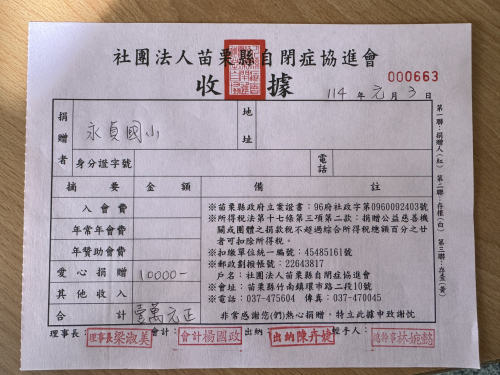 社團法人苗栗縣自閉症協進會
收據
000663
114年元月3日
捐贈者
永貞國小
地址
身分證字號
電話
摘要 金額 備註
入會費
年常年會費
年贊助會費
愛心捐贈 10000-
其他收入
合計 壹萬元正
※苗栗縣政府立案證書:96府社政字第0960092403號
※所得稅法第十七條第三項第二款:捐贈公益慈善機
關或團體之捐款稅不超過綜合所得稅總額百分之廿
者可扣除所得稅。
※扣繳單位統一編號:45485161號
※郵政劃撥帳號:22643817
戶名:社團法人苗栗縣自閉症協進會
※會址:苗栗縣竹南鎮環市路二段10號
※電話:037-475604 傳真:037-470045
非常感謝您(們)熱心捐贈,特立此據申致謝忱
第一聯:捐贈人(紅) 第二聯:存根(白) 第三聯:存查(黃)
理事長: 理事長梁淑美 會計: 會計楊國政 出納: 出納陳卉捷 經手人: 總幹事林婉懿